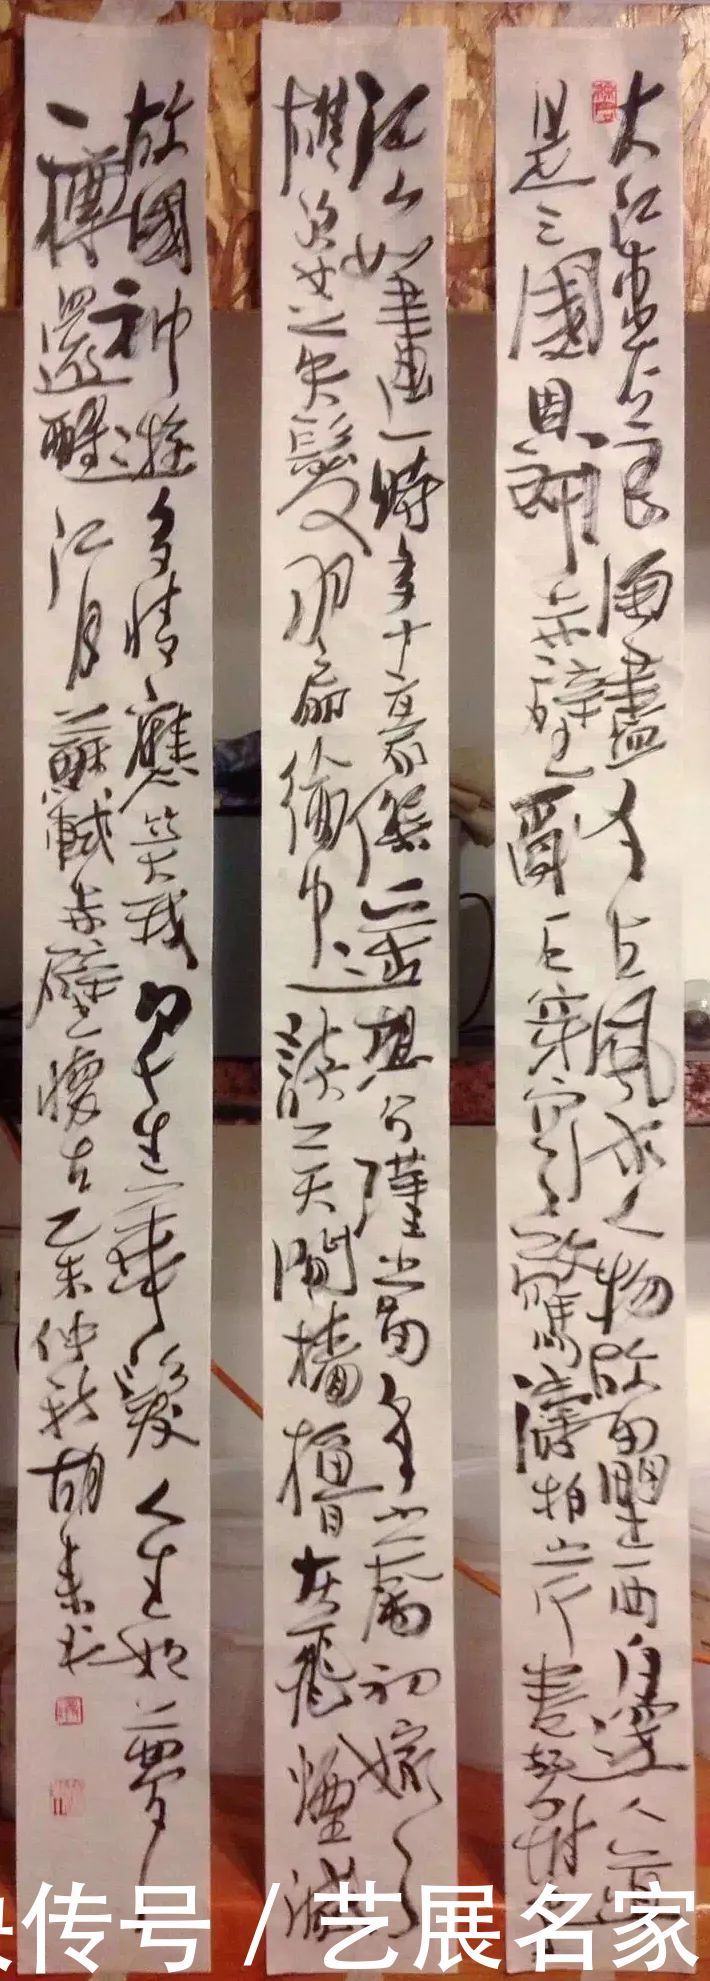 大江東去浪淘盡千古風流人物故壘西邊人道
是三國周郎赤壁亂石穿空驚濤拍岸卷起千堆
江山如畫一時多少豪傑遙想公瑾當年小喬初嫁了
雄姿英發羽扇綸巾談笑間檣櫓灰飛煙滅
故國神遊多情應笑我早生華髮人生如夢
一樽還酹江月蘇軾赤壁懷古乙未仲秋胡
快传号 / 艺展名家